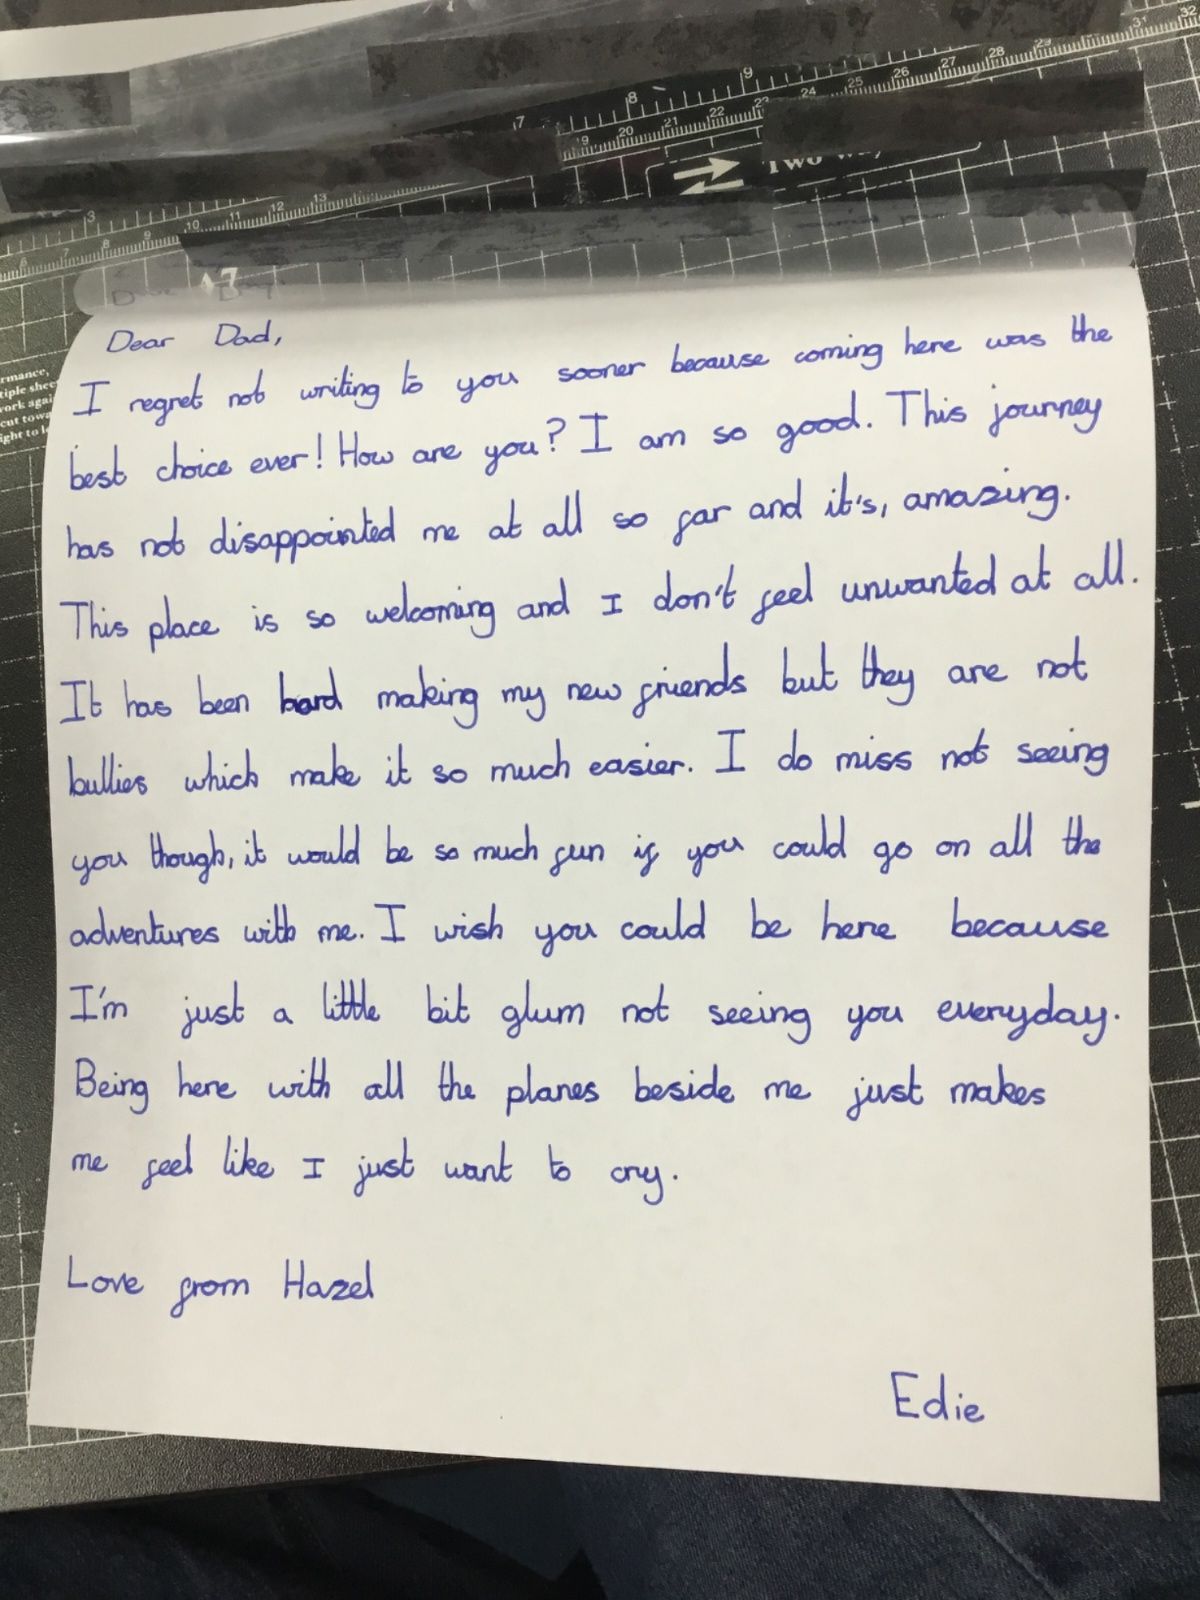 32
31
29
28
27
26
25
24
23
22
21
20
9
8
7
Two
13
12
11
10
9
8
7
6
3
rmance,
tiple shee
ork agai
cut towa
ight to l
Dear Dad,
I regret not writing to you sooner because coming here was the
best choice ever! How are you? I am so good. This journey
has not disappointed me at all so far and it's, amazing.
This place is so welcoming and I don't feel unwanted at all.
It has been hard making my new friends but they are not
bullies which make it so much easier. I do miss not seeing
you though, it would be so much fun if you could go on all the
adventures with me. I wish you could be here because
I'm just a little bit glum not seeing you everyday.
Being here with all the planes beside me just makes
me feel like I just want to cry.
Love from Hazel
Edie